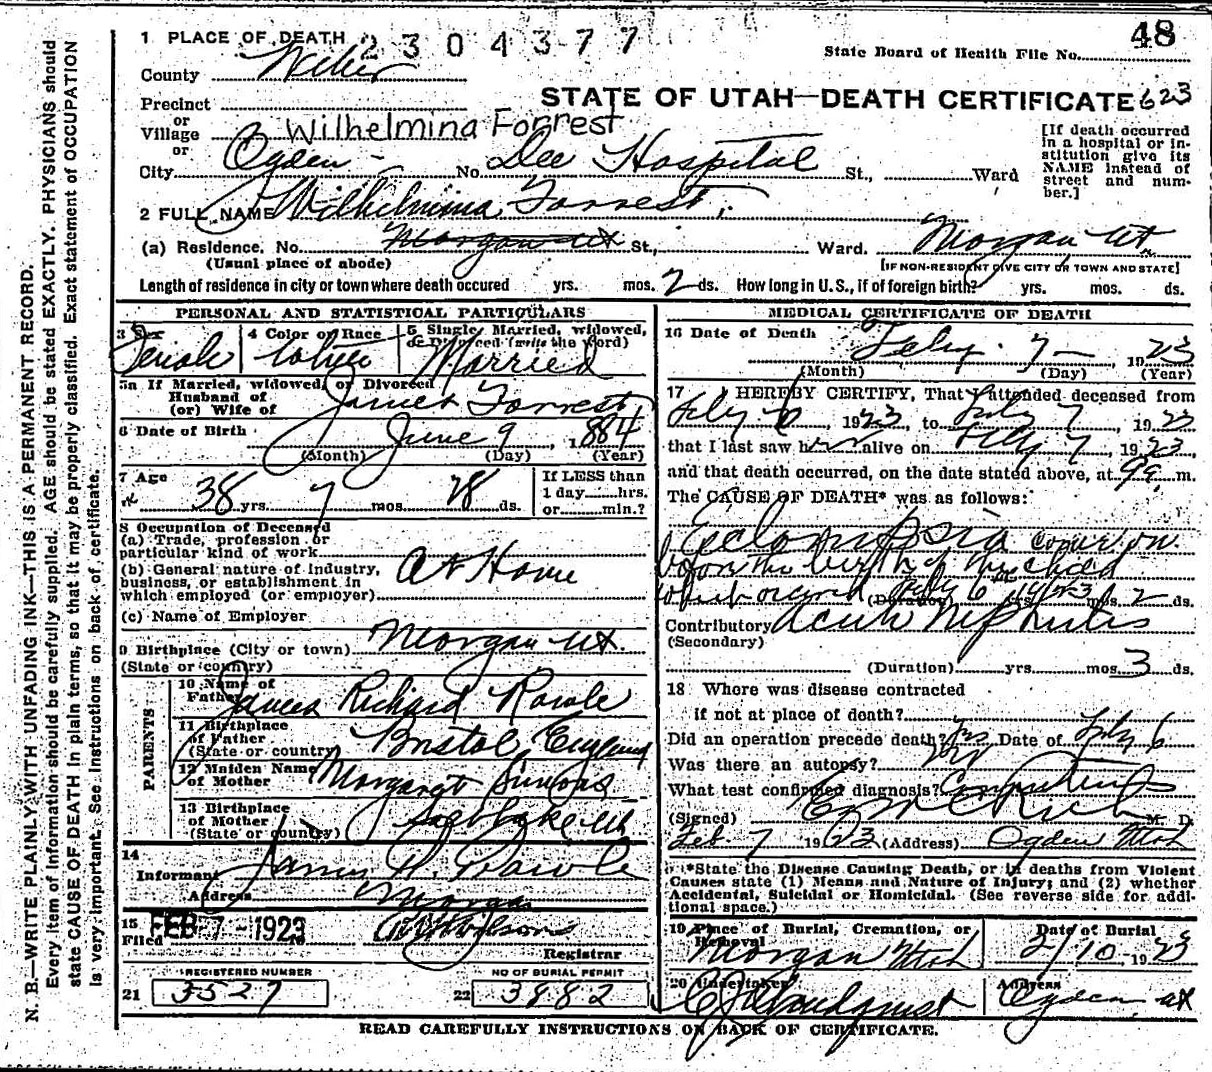 48
1 PLACE OF DEATH 2304377
State Board of Health File No.
County Weber
STATE OF UTAH—DEATH CERTIFICATE 623
Precinct
or
Village
Wilhelmina Forrest
or
City Ogden - No. Dee Hospital St., Ward
[If death occurred in a hospital or in-
stitution give its
NAME instead of
street and num-
ber.]
2 FULL NAME Wilhelmina Forrest
(a) Residence. No. Morgan Ut St., Ward. Morgan Ut.
(Usual place of abode)
[IF NON-RESIDENT GIVE CITY OR TOWN AND STATE]
Length of residence in city or town where death occured yrs. mos. 2 ds. How long in U.S., if of foreign birth? yrs. mos. ds.
PERSONAL AND STATISTICAL PARTICULARS
3 Sex
Female
4 Color or Race
White
5 Single, Married, widowed,
or Divorced (write the word)
Married
5a If Married, widowed, or Divorced
Husband of
(or) Wife of James Forrest
6 Date of Birth June 9, 1884
(Month) (Day) (Year)
7 Age
38 yrs. 7 mos. 28 ds.
If LESS than
1 day......hrs.
or......min.?
8 Occupation of Deceased
(a) Trade, profession or
particular kind of work
(b) General nature of Industry,
business, or establishment in
which employed (or employer)
At Home
(c) Name of Employer
9 Birthplace (City or town) Morgan Ut.
(State or country)
PARENTS
10 Name of
Father James Richard Rawle
11 Birthplace
of Father
(State or country) Bristol, England
12 Maiden Name
of Mother Margaret Simons
13 Birthplace
of Mother
(State or country) Salt Lake Ut
14
Informant James R. Rawle
Address Morgan
15
Filed FEB 7 - 1923
Registrar
REGISTERED NUMBER
21 3527
NO OF BURIAL PERMIT
22 3982
MEDICAL CERTIFICATE OF DEATH
16 Date of Death
Feby. 7— 1923
(Month) (Day) (Year)
17 I HEREBY CERTIFY, That I attended deceased from
Feby 6, 1923, to Feby 7, 1923
that I last saw her alive on Feby 7, 1923,
and that death occurred, on the date stated above, at 9 a. m.
The CAUSE OF DEATH* was as follows:
Eclampsia coming on
before the birth of the child
which occurred Feby 6th 1923
(Duration) yrs. mos. 2 ds.
Contributory Acute Nephritis
(Secondary)
(Duration) yrs. mos. 3 ds.
18 Where was disease contracted
if not at place of death?
Did an operation precede death? Yes Date of Feby 6
Was there an autopsy? No
What test confirmed diagnosis?
(Signed) Rich M. D.
Feb. 7 1923 (Address) Ogden Utah
*State the Disease Causing Death, or in deaths from Violent
Causes state (1) Means and Nature of Injury; and (2) whether
Accidental, Suicidal or Homicidal. (See reverse side for addi-
tional space.)
19 Place of Burial, Cremation, or
Removal
Morgan Utah
Date of Burial
2/10, 1923
20 Undertaker
Address
Ogden Ut
READ CAREFULLY INSTRUCTIONS ON BACK OF CERTIFICATE.
N. B.—WRITE PLAINLY WITH UNFADING INK—THIS IS A PERMANENT RECORD.
Every item of information should be carefully supplied. AGE should be stated EXACTLY. PHYSICIANS should
state CAUSE OF DEATH in plain terms, so that it may be properly classified. Exact statement of OCCUPATION
is very important. See instructions on back of certificate.